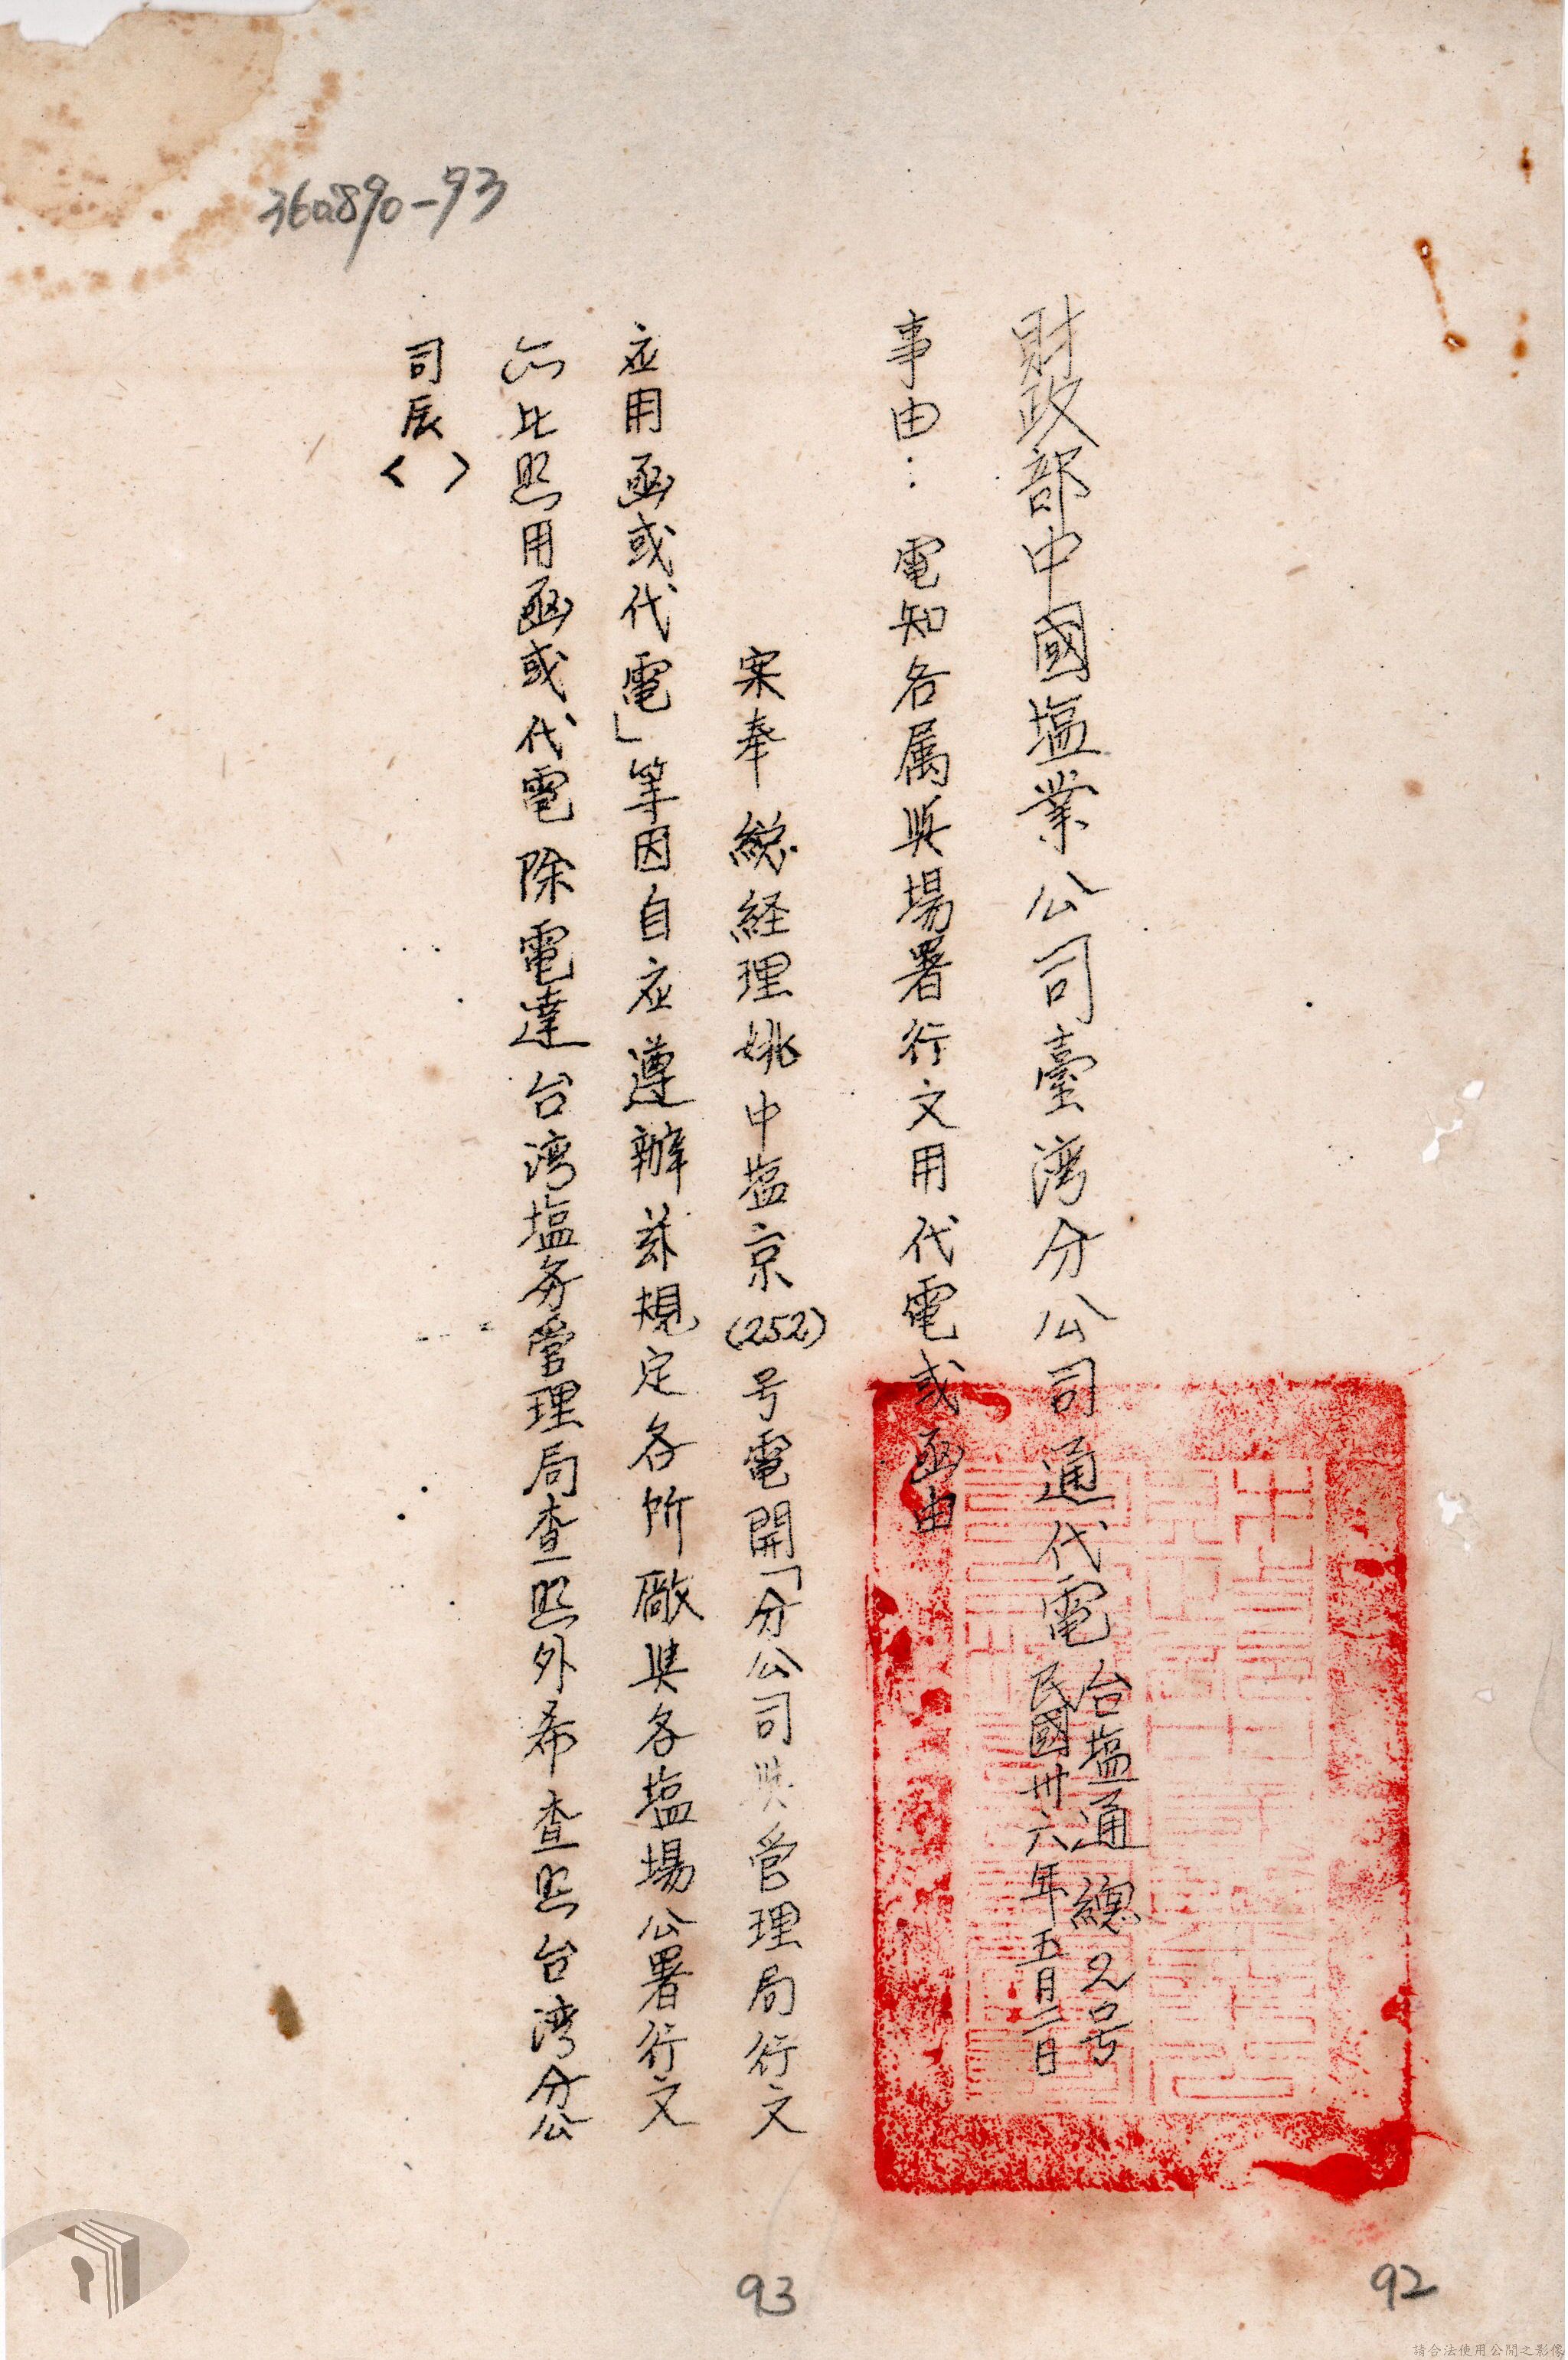 財政部中國塩業公司臺湾分公司通代電
台塩通總2号
民國卅六年五月二日
事由：電知各属與場署行文用代電或函由
案奉總経理姚中塩京(252)号電開「分公司與管理局行文
应用函或代電」等因自应遵辦茲規定各所廠與各塩場公署行文
亦比照用函或代電除電達台湾塩务管理局查照外希查照台湾分公
司辰〈 〉
360890-93
93
92
請合法使用公開之影像